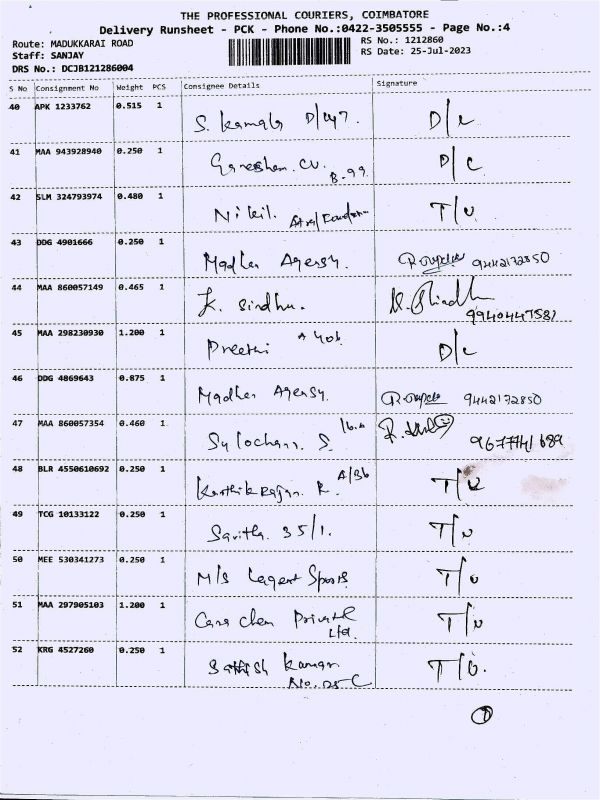 THE PROFESSIONAL COURIERS, COIMBATORE
Delivery Runsheet - PCK - Phone No.:0422-3505555 - Page No.:4
Route: MADUKKARAI ROAD
RS No.: 1212860
Staff: SANJAY
RS Date: 25-Jul-2023
DRS No.: DCJB121286004
S No Consignment No Weight PCS Consignee Details Signature
40 APK 1233762 0.515 1
S. Kamala
41 MAA 943928940 0.250 1
Ganeshan. CV. D/C
B-99
42 SLM 324793974 0.480 1
Nikil. T/U
43 DDG 4901666 0.250 1
Madhu Agensy. 9442172850
44 MAA 860057149 0.465 1
K. Sindhu.
9940447581
45 MAA 298230930 1.200 1
Preethi A 406 D/C
46 DDG 4869643 0.875 1
Madhu Agensy. 9442172850
47 MAA 860057354 0.460 1
Sulochana. S.
48 BLR 4550610692 0.250 1
Karthik Rajan. R. A/36 T/U
49 TCG 10133122 0.250 1
Savitha. 35/1. T/U
50 MEE 530341273 0.250 1
M/s Legent Sports T/U
51 MAA 297905103 1.200 1
Chem Private T/U
Ltd.
52 KRG 4527260 0.250 1
Sathish Kumar T/U.